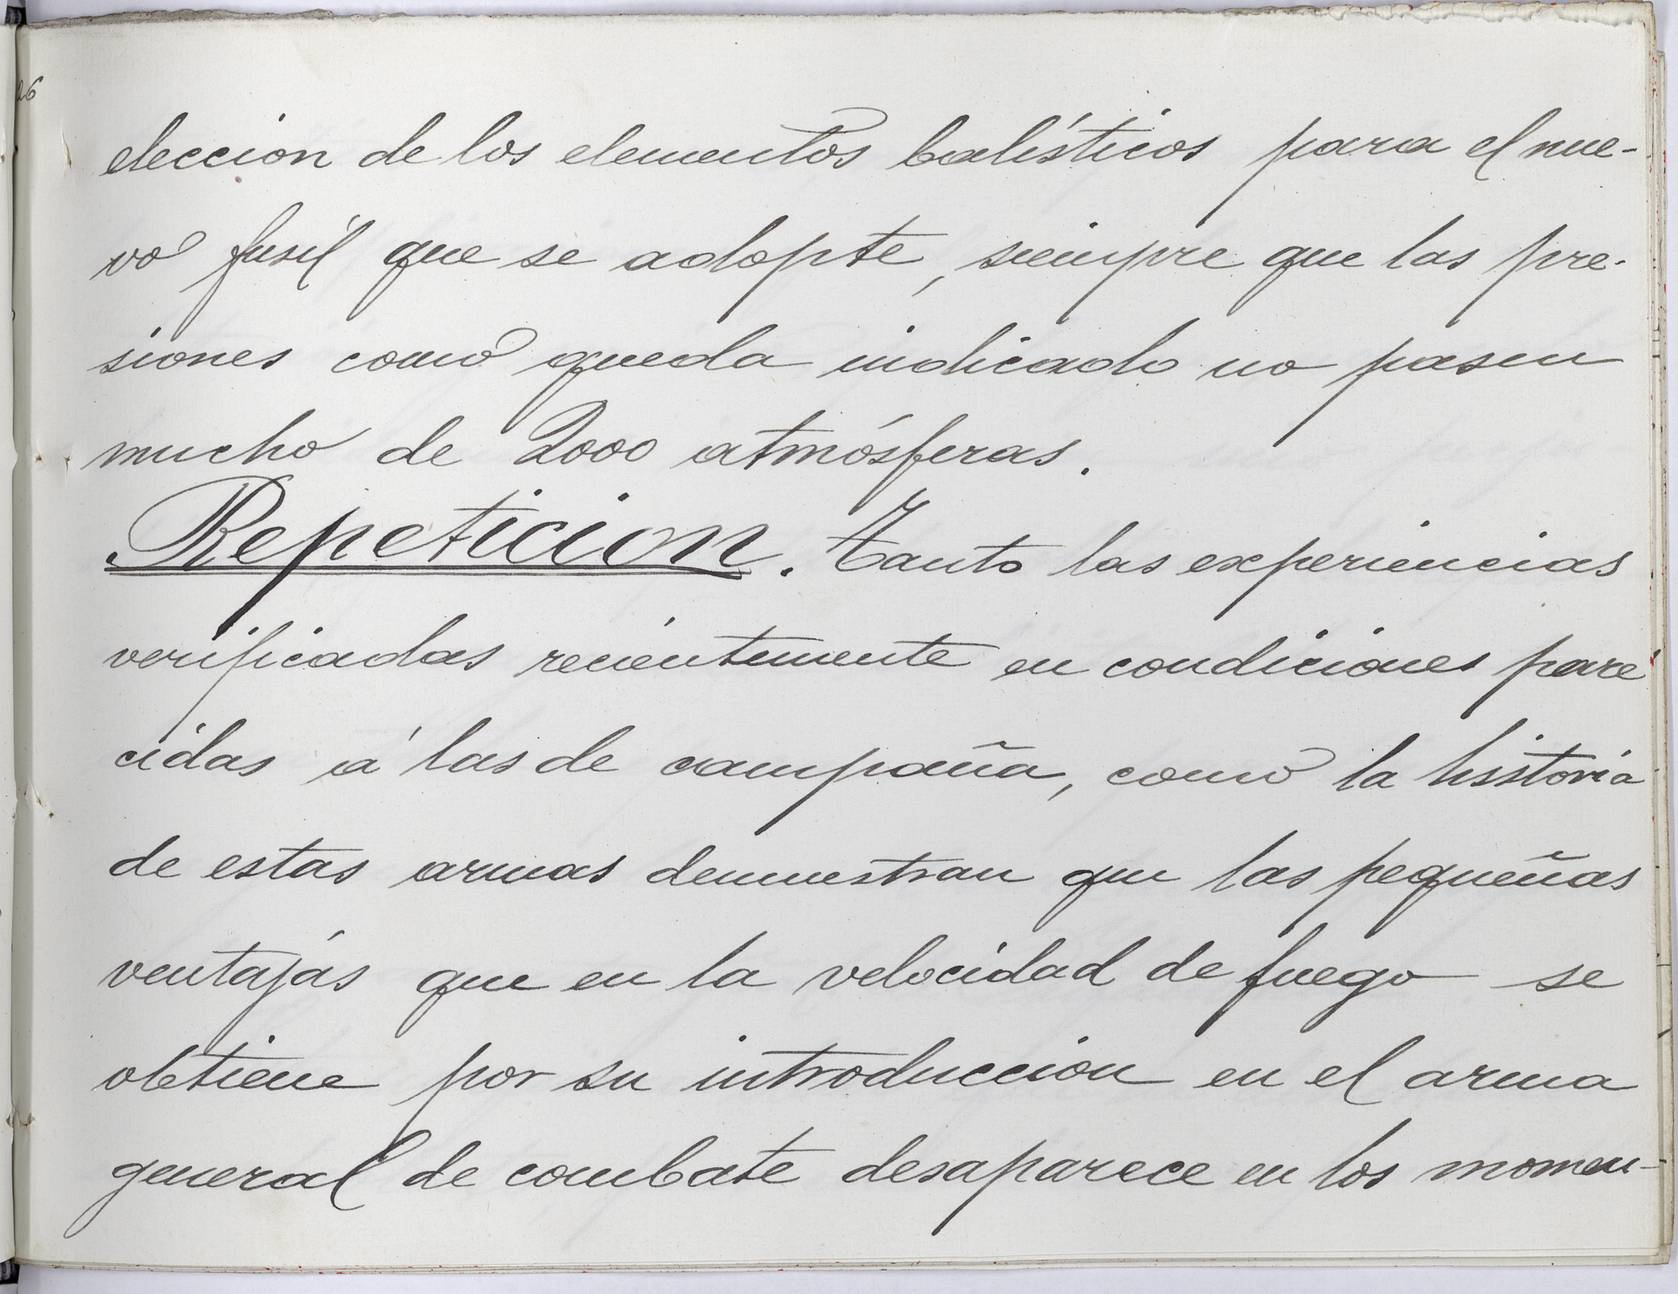 26
eleccion de los elementos balísticos para el nue-
vo fusil que se adopte, siempre que las pre-
siones como queda indicado no pasen
mucho de 2000 atmósferas.
Repeticion. Tanto las experiencias
verificadas recientemente en condiciones pare
cidas á las de campaña, como la historia
de estas armas demuestran que las pequeñas
ventajas que en la velocidad de fuego se
obtiene por su introduccion en el arma
general de combate desaparece en los momen-